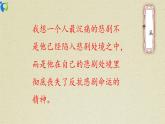 我想一个人最沉痛的悲剧不
是他已经陷入悲剧处境之中，
而是他在自己的悲剧处境里
彻底丧失了反抗悲剧命运的
精神。